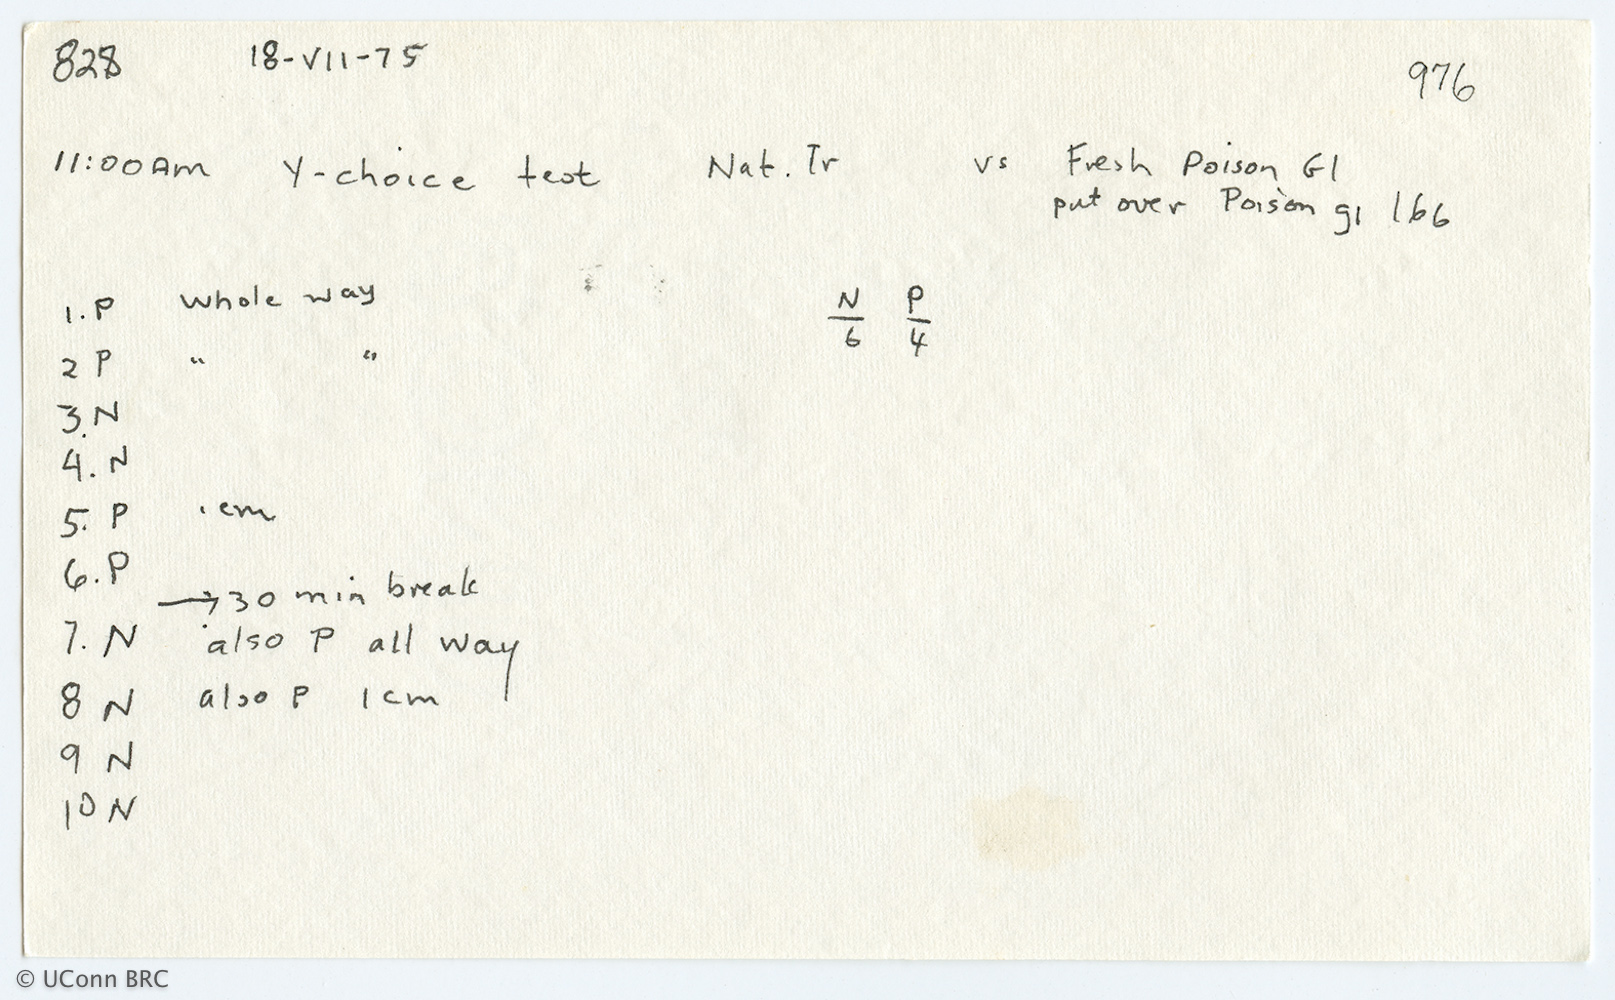 828 18-VII-75 976
11:00 Am Y-choice test Nat. Tr vs Fresh Poison Gl
put over Poison gl 166
1. P whole way
N P
6 4
2 P " "
3. N
4. N
5. P 1 cm
6. P
→ 30 min break
7. N also P all way
8 N also P 1 cm
9 N
10 N
© UConn BRC